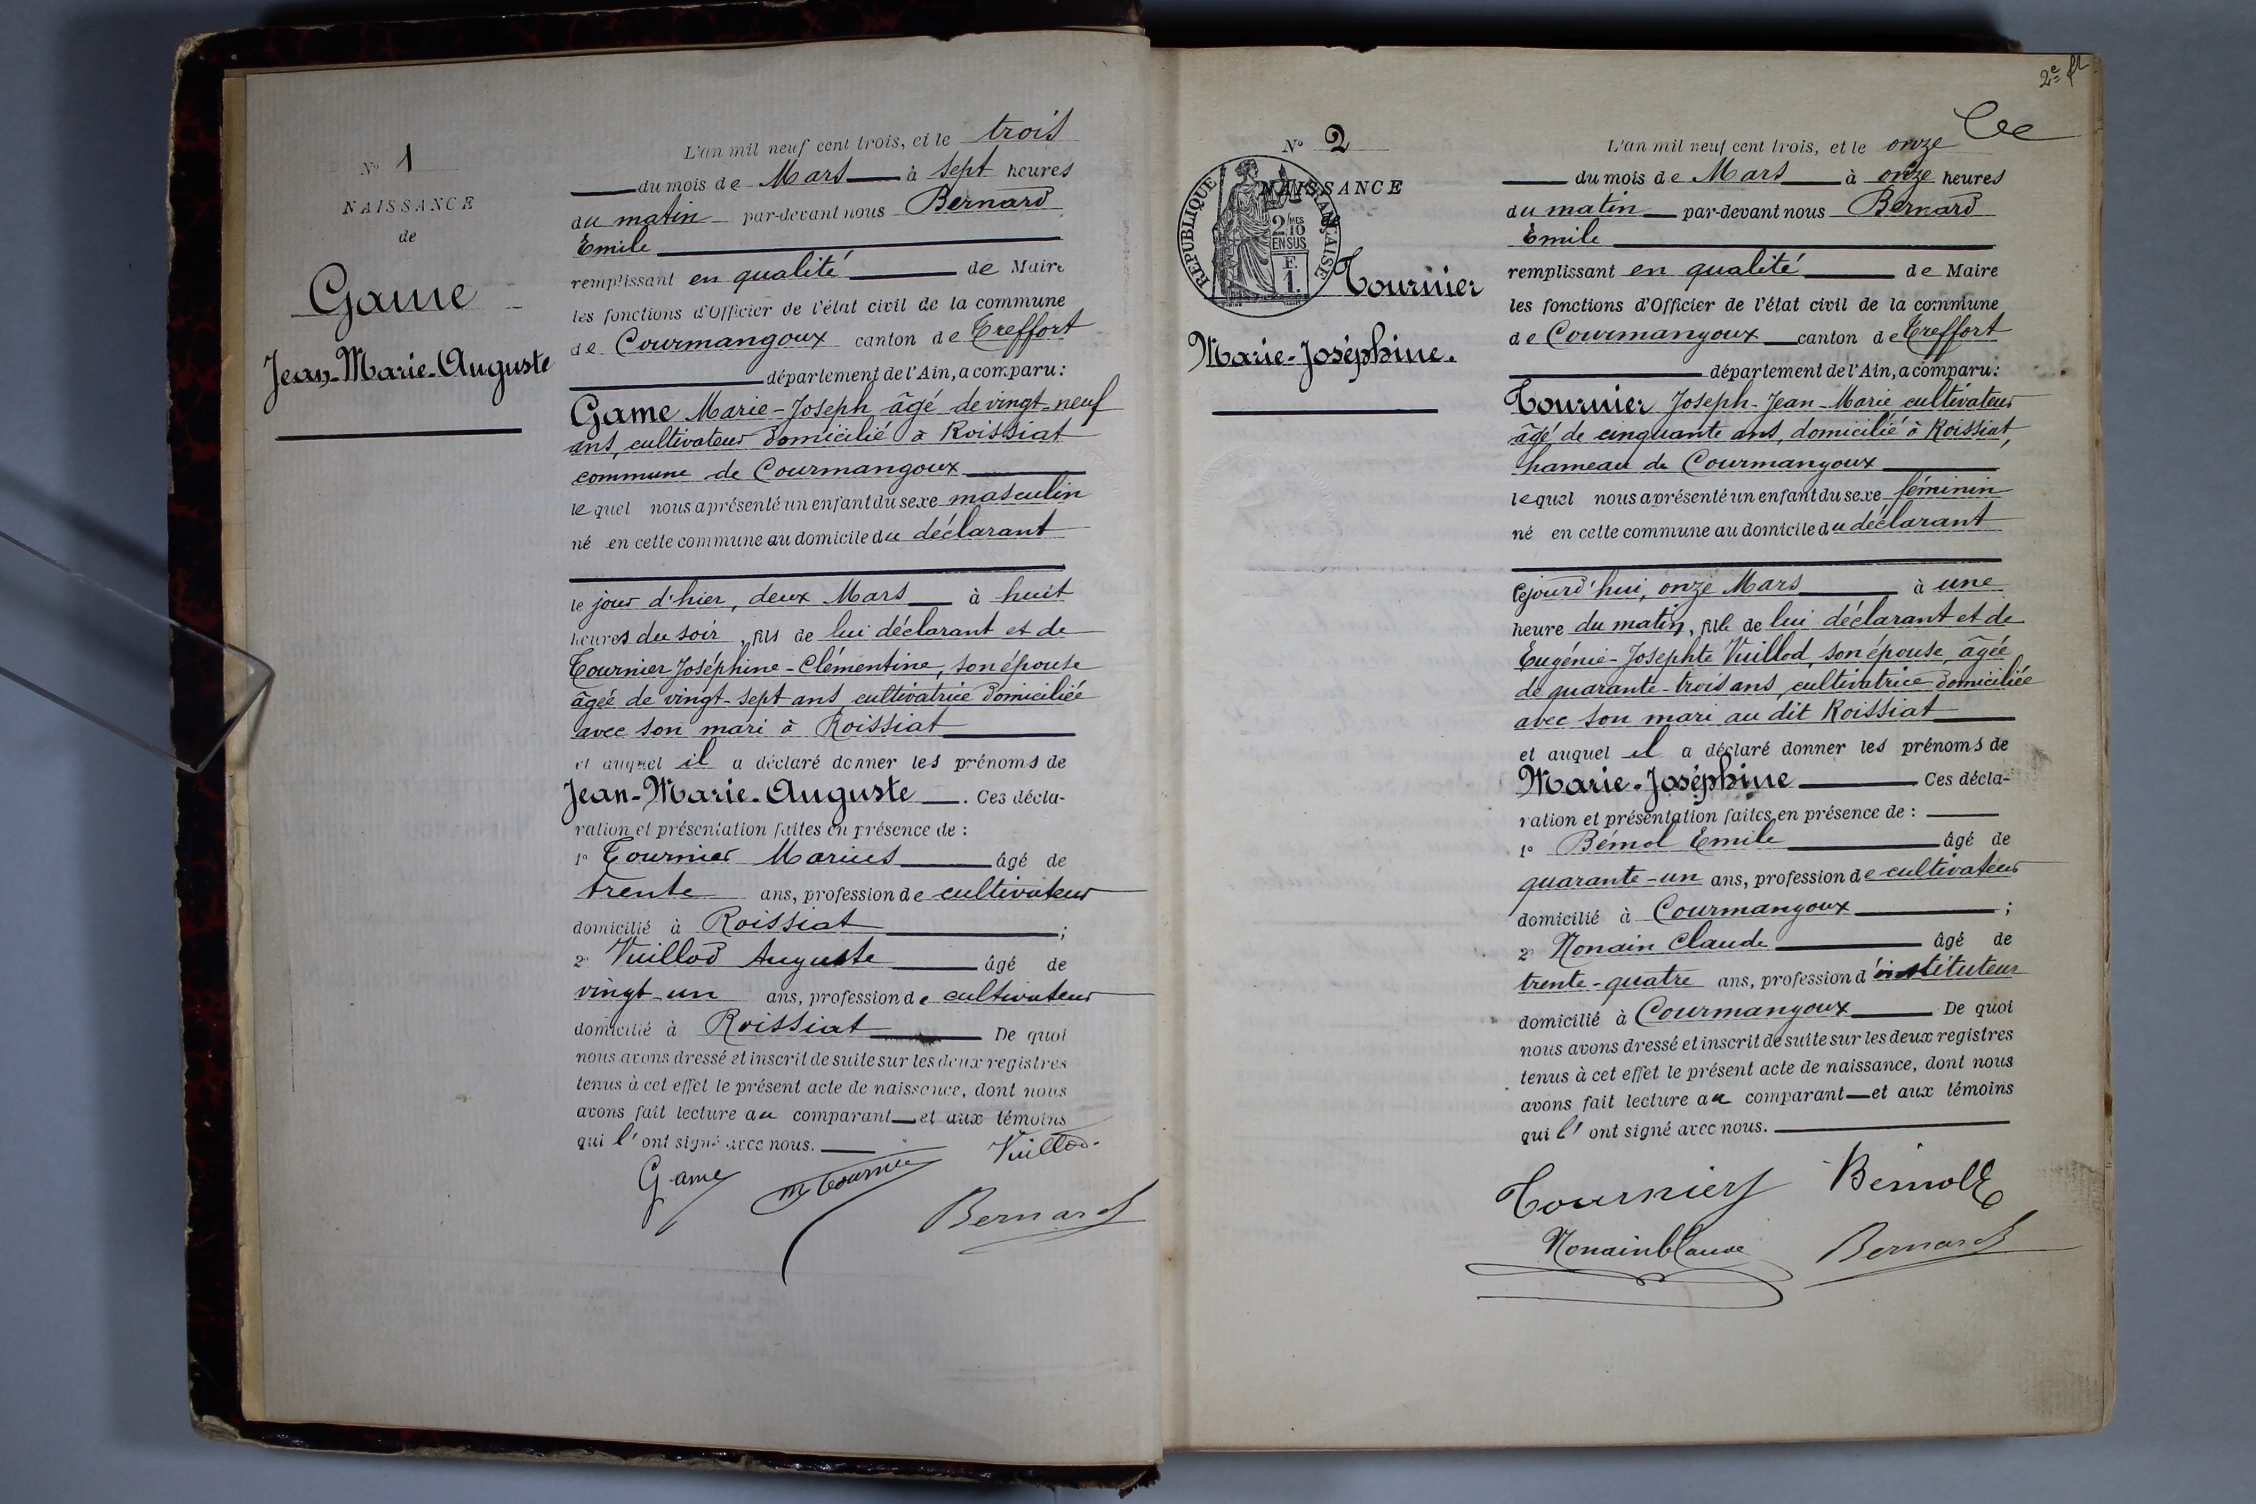 N° 1
NAISSANCE
de
Game
Jean-Marie-Auguste
L'an mil neuf cent trois, et le trois
du mois de Mars à sept heures
du matin par-devant nous Bernard
Emile
remplissant en qualité de Maire
les fonctions d'Officier de l'état civil de la commune
de Courmangoux canton de Treffort
département de l'Ain, a comparu:
Game Marie-Joseph âgé de vingt-neuf
ans, cultivateur domicilié à Roissiat
commune de Courmangoux
lequel nous a présenté un enfant du sexe masculin
né en cette commune au domicile du déclarant
le jour d'hier, deux Mars à huit
heures du soir, fils de lui déclarant et de
Tournier Joséphine-Clémentine, son épouse
âgée de vingt-sept ans, cultivatrice domiciliée
avec son mari à Roissiat
et auquel il a déclaré donner les prénoms de
Jean-Marie-Auguste. Ces décla-
ration et présentation faites en présence de :
1° Tournier Marius âgé de
trente ans, profession de cultivateur
domicilié à Roissiat ;
2° Vuillod Auguste âgé de
vingt-un ans, profession de cultivateur
domicilié à Roissiat De quoi
nous avons dressé et inscrit de suite sur les deux registres
tenus à cet effet le présent acte de naissance, dont nous
avons fait lecture au comparant et aux témoins
qui l'ont signé avec nous.
Game M Tournier Vuillod
Bernard
2e ft
N° 2
NAISSANCE
de
REPUBLIQUE FRANÇAISE
2/10 EN SUS
F.
1.
Tournier
Marie-Joséphine.
L'an mil neuf cent trois, et le onze
du mois de Mars à onze heures
du matin par-devant nous Bernard
Emile
remplissant en qualité de Maire
les fonctions d'Officier de l'état civil de la commune
de Courmangoux canton de Treffort
département de l'Ain, a comparu:
Tournier Joseph-Jean-Marie cultivateur
âgé de cinquante ans, domicilié à Roissiat,
hameau de Courmangoux
lequel nous a présenté un enfant du sexe féminin
né en cette commune au domicile du déclarant
cejourd'hui, onze Mars à une
heure du matin, fille de lui déclarant et de
Eugénie-Josephte Vuillod, son épouse, âgée
de quarante-trois ans, cultivatrice domiciliée
avec son mari au dit Roissiat
et auquel il a déclaré donner les prénoms de
Marie-Joséphine Ces décla-
ration et présentation faites en présence de :
1° Bémol Emile âgé de
quarante-un ans, profession de cultivateur
domicilié à Courmangoux ;
2° Nonain Claude âgé de
trente-quatre ans, profession d'instituteur
domicilié à Courmangoux De quoi
nous avons dressé et inscrit de suite sur les deux registres
tenus à cet effet le présent acte de naissance, dont nous
avons fait lecture au comparant et aux témoins
qui l'ont signé avec nous.
Tournier J Bémol E
Nonain Claude Bernard